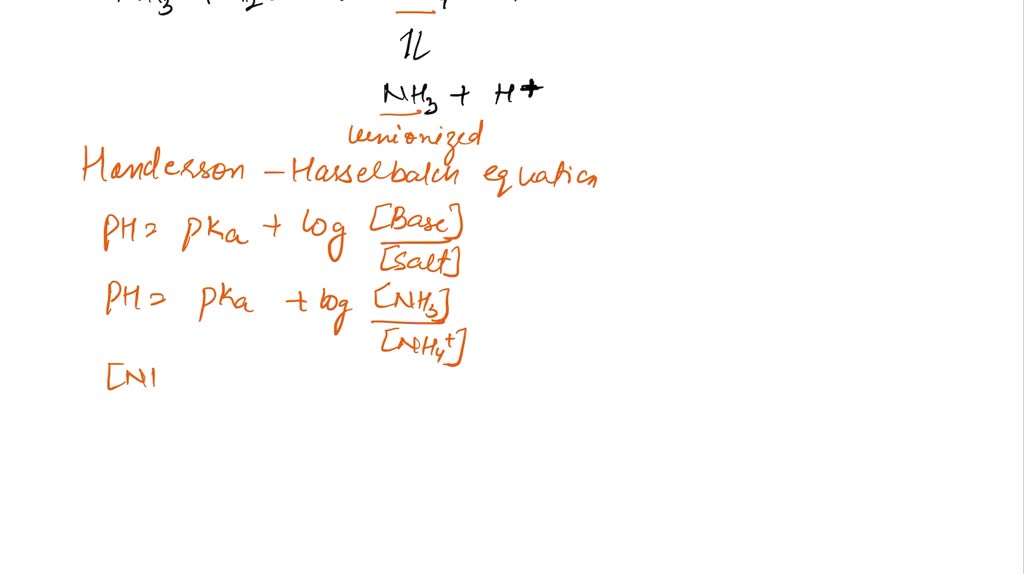 1L
NH3 + H+
unionized
Handerson - Hasselbalch equation
pH = pKa + log [Base]
[Salt]
pH = pKa + log [NH3]
[NH4+]
[N